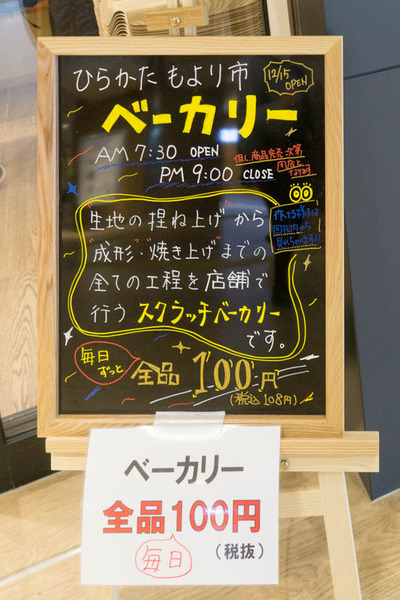 ひらかた もより市
12/15 OPEN
ベーカリー
AM 7:30 OPEN
PM 9:00 CLOSE
但し、商品完売次第
閉店と
なります
"生地の捏ね上げ"から
"成形"・"焼き上げ"までの
全ての工程を店舗で
行う スクラッチベーカリー
です。
毎日
ずっと
全品 100円
(税込 108円)
ベーカリー
全品100円
毎日
(税抜)